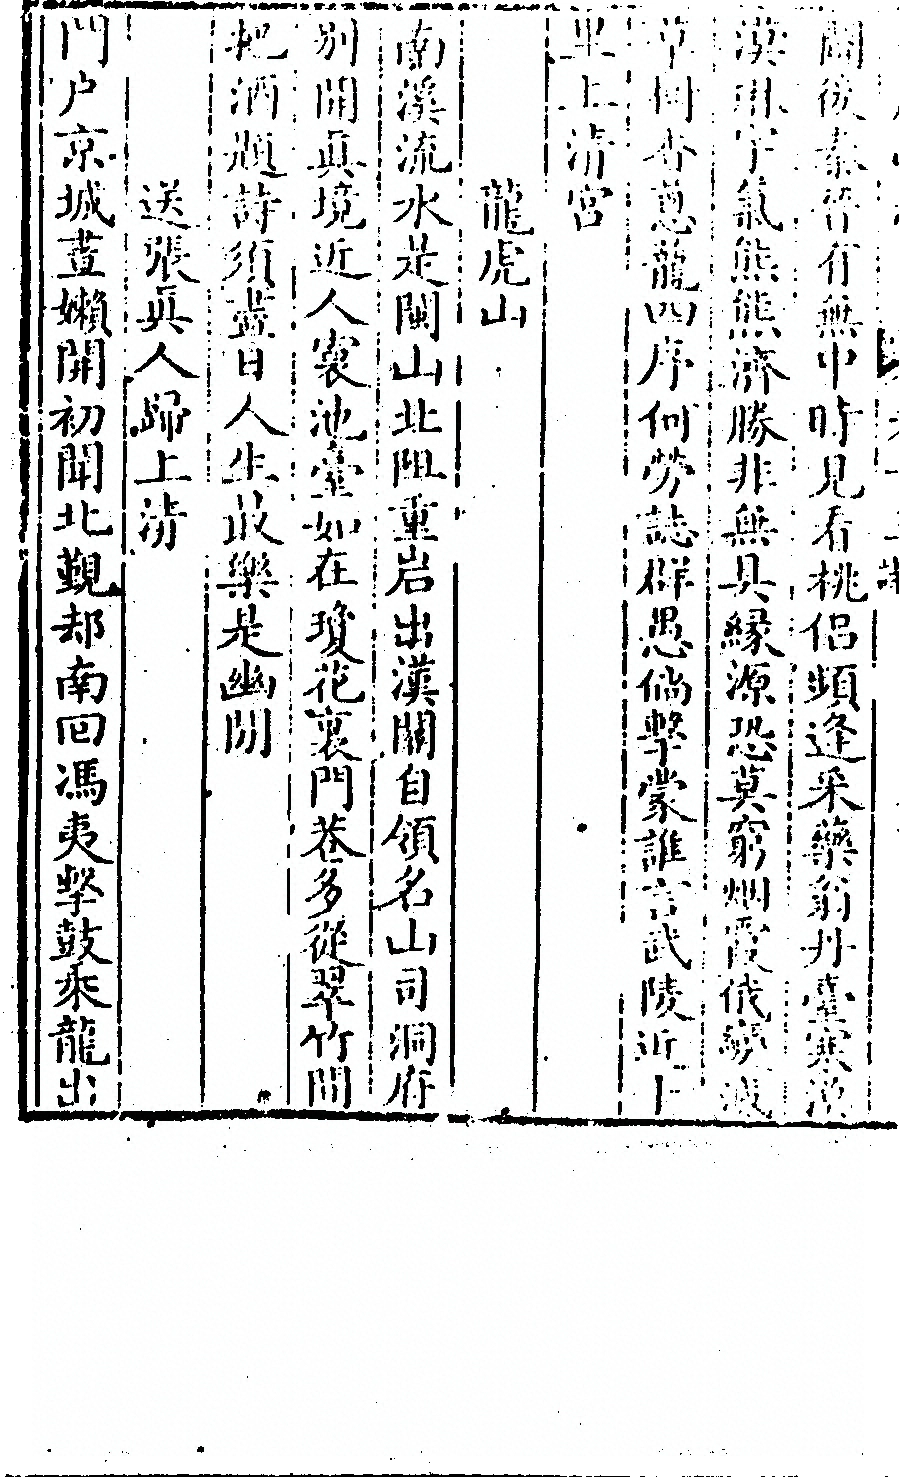 闗後秦晉有無中時見看桃侣頻逢采藥翁丹臺寒
漢丹宇氣熊熊濟勝非無具縁源恐莫窮烟霞俄
草樹杳葱蘢四序何勞誌群愚倘擊蒙誰言武陵近十
里上清宫
龍虎山
南溪流水是閩山北阻重岩出漢關自領名山司洞府
别開真境近人寰池臺如在瓊花裏門巷多從翠竹間
把酒題詩須盡日人生最樂是幽閒
送張真人歸上清
門户京城晝嬾開初聞北覲却南回馮夷擊鼓乘龍出